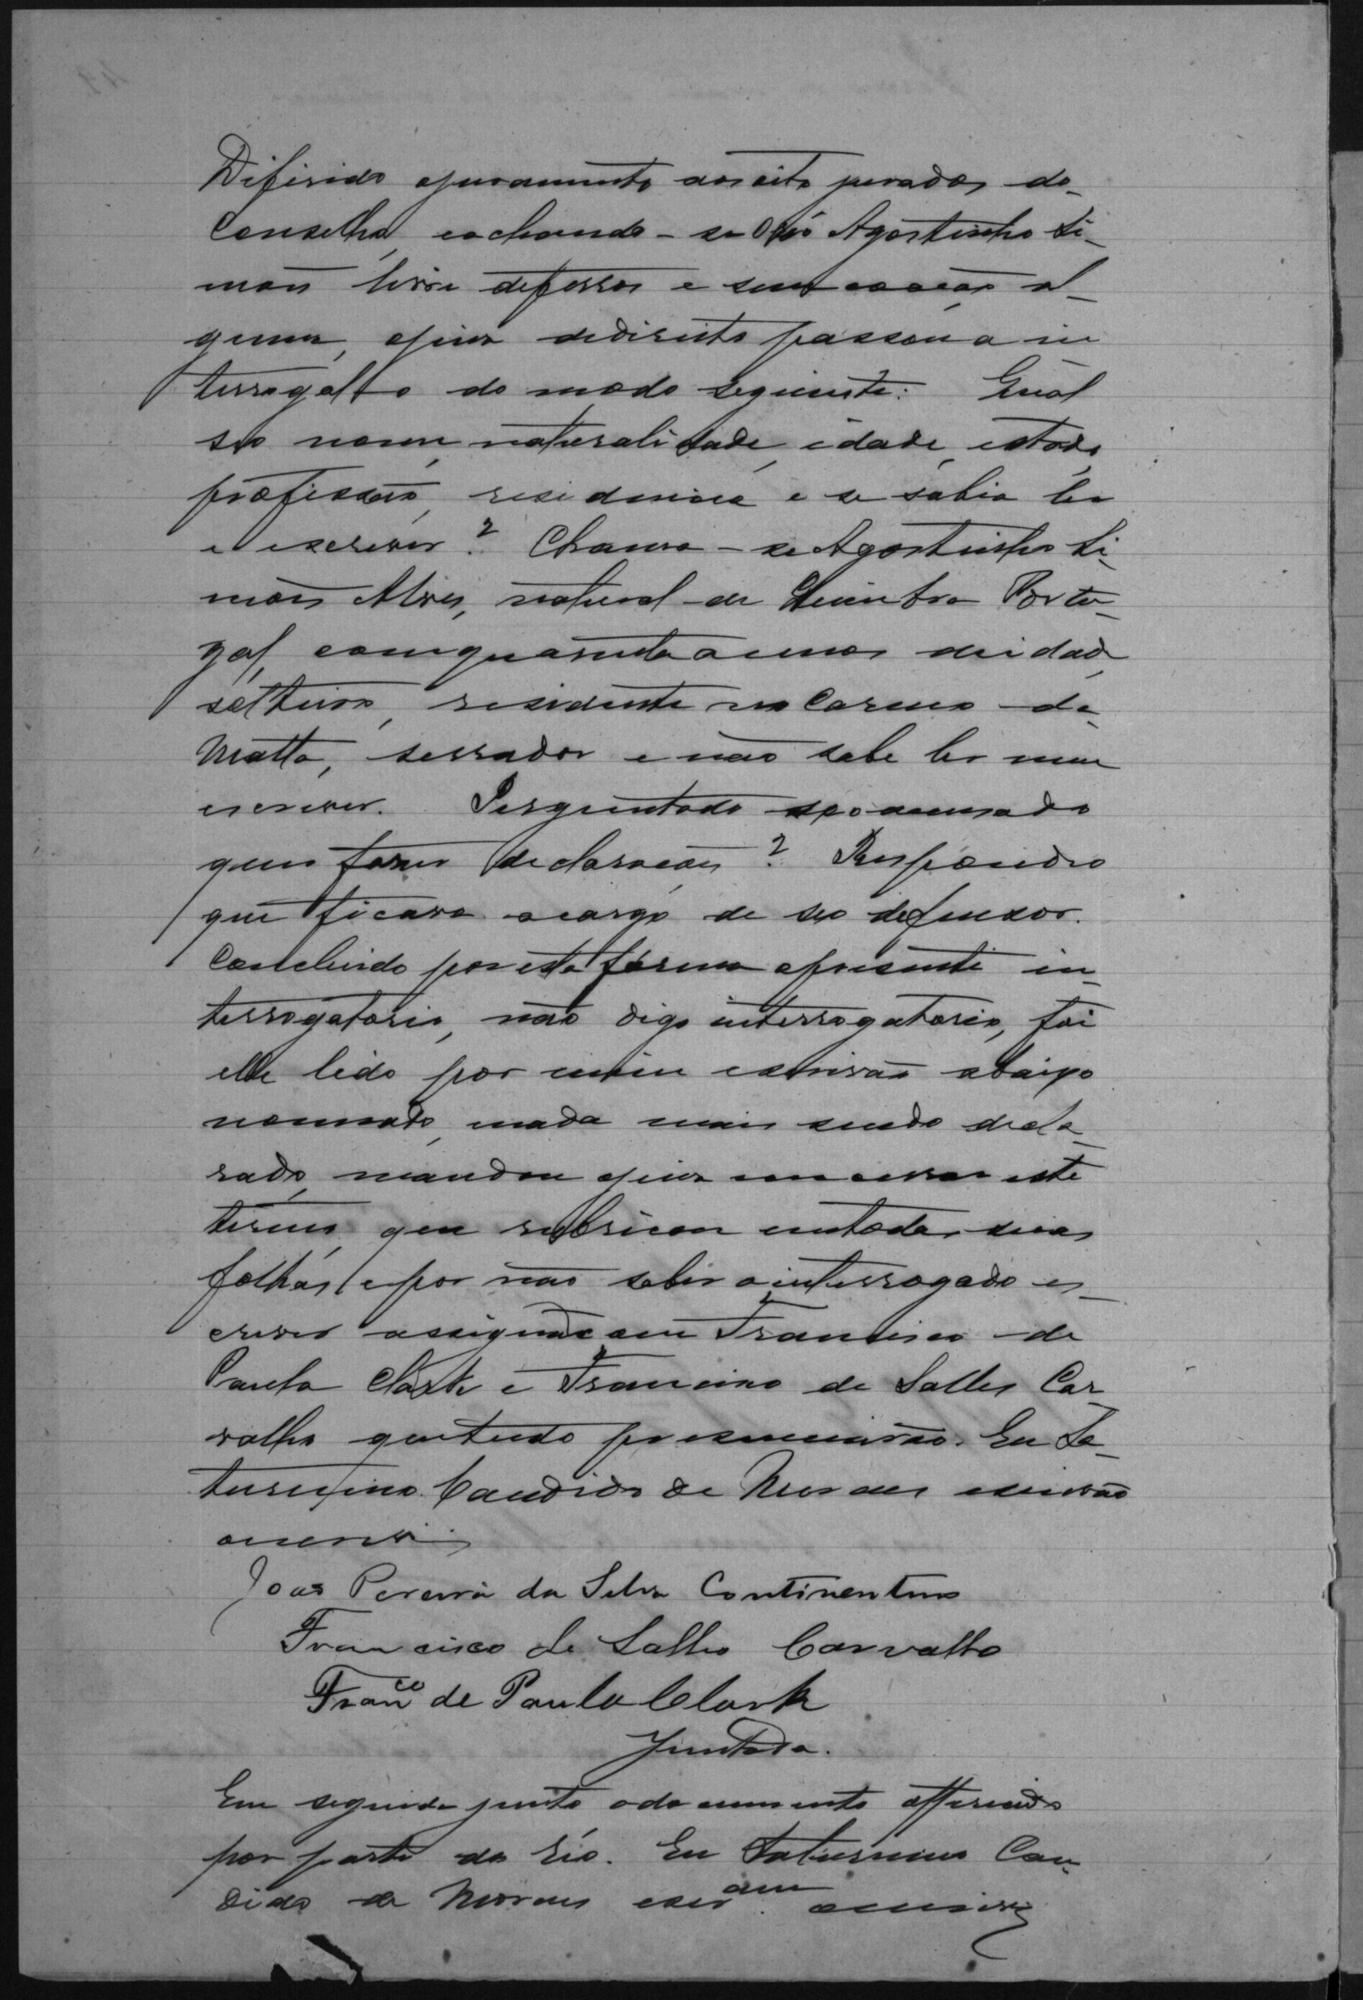 Diferido o juramento aos oito jurados do
Conselho, e achando-se o réo Agostinho Si-
mões livre de ferros e sem coacção al-
guma, o juiz de direito passou a in
terrogal-o do modo seguinte: Qual
seo nome, naturalidade, idade, estado
profissão, residencia e se sabia ler
e escrever? Chama-se Agostinho Si-
mões Alves, natural de Coimbra Portu-
gal, com quarenta annos de idade,
solteiro, residente no Carmo da
Matta, serrador e não sabe ler nem
escrever. Perguntado se o accusado
quer fazer declarações? Respondeo
que ficava a cargo de seo defensor.
Concluido por esta forma o presente in-
terrogatorio, não digo interrogatorio, foi
elle lido por mim escrivão abaixo
nomeado, nada mais sendo decla-
rado, mandou o juiz encerrar este
termo, que rubricou em todas suas
folhas e por não saber o interrogado es-
crever assignão com Francisco de
Paula Clark e Francisco de Salles Car
valho que tudo presenciarão. Eu Sa-
turnino Candido de Moraes escrivão
o escrevi
João Pereira da Silva Continentino
Francisco de Salles Carvalho
Fran.co de Paula Clark
Juntada.
Em seguida junto o documento offerecido
por parte do réo. Eu Saturnino Can-
dido de Moraes escr.am o escrevi